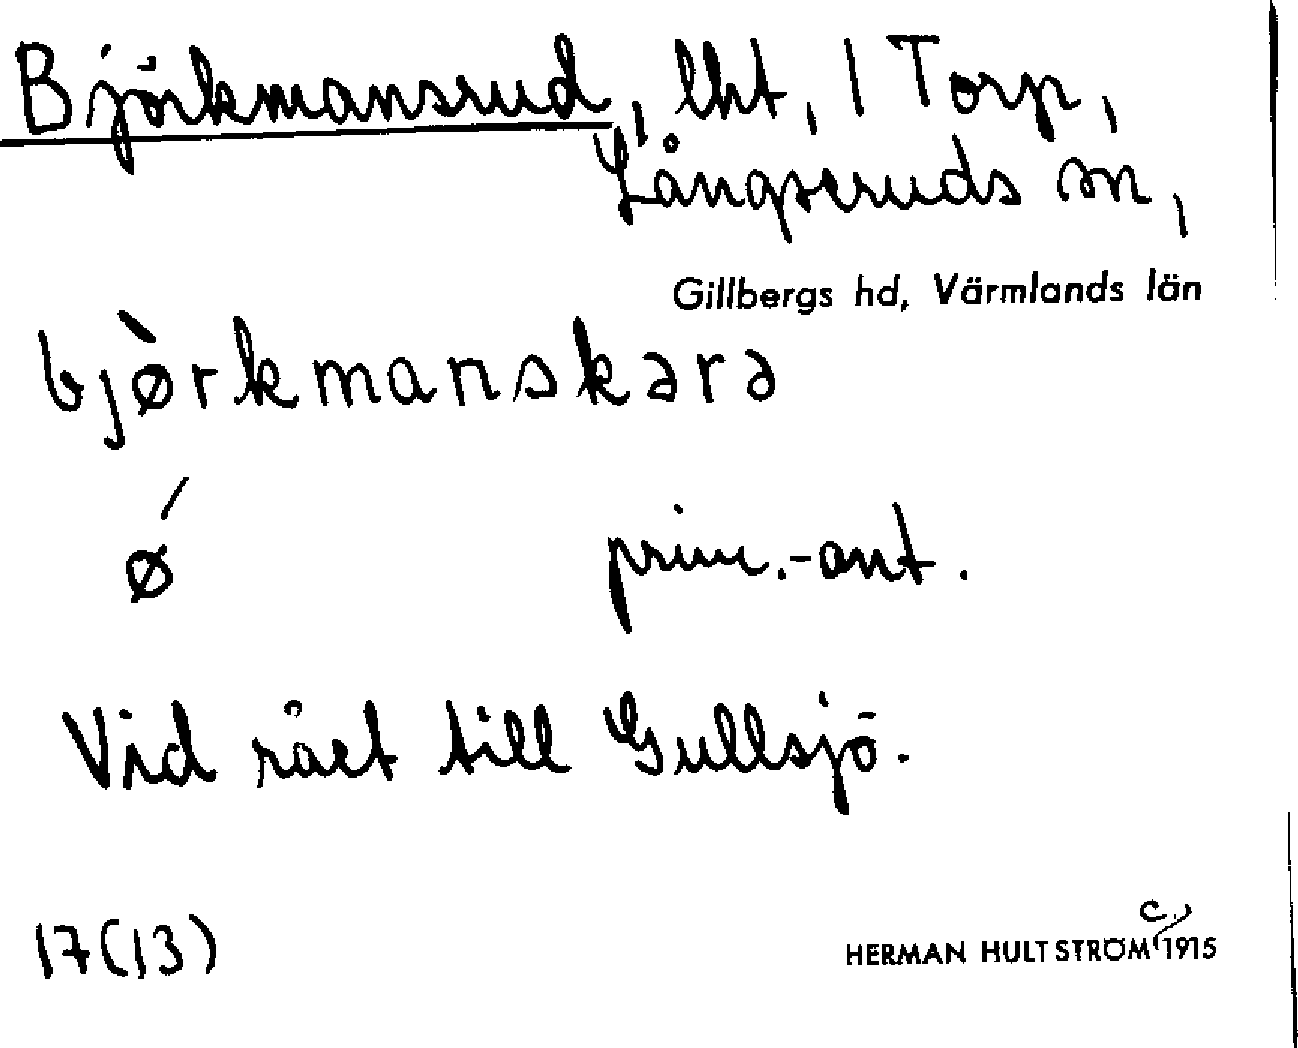 Björkmansrud, lht, 1 Torp,
Långseruds sn,
Gillbergs hd, Värmlands län
bjø̀rkmanskərə
ǿ prim.-ant.
Vid rået till Gullsjö.
17(13)
HERMAN HULTSTRÖM c. 1915